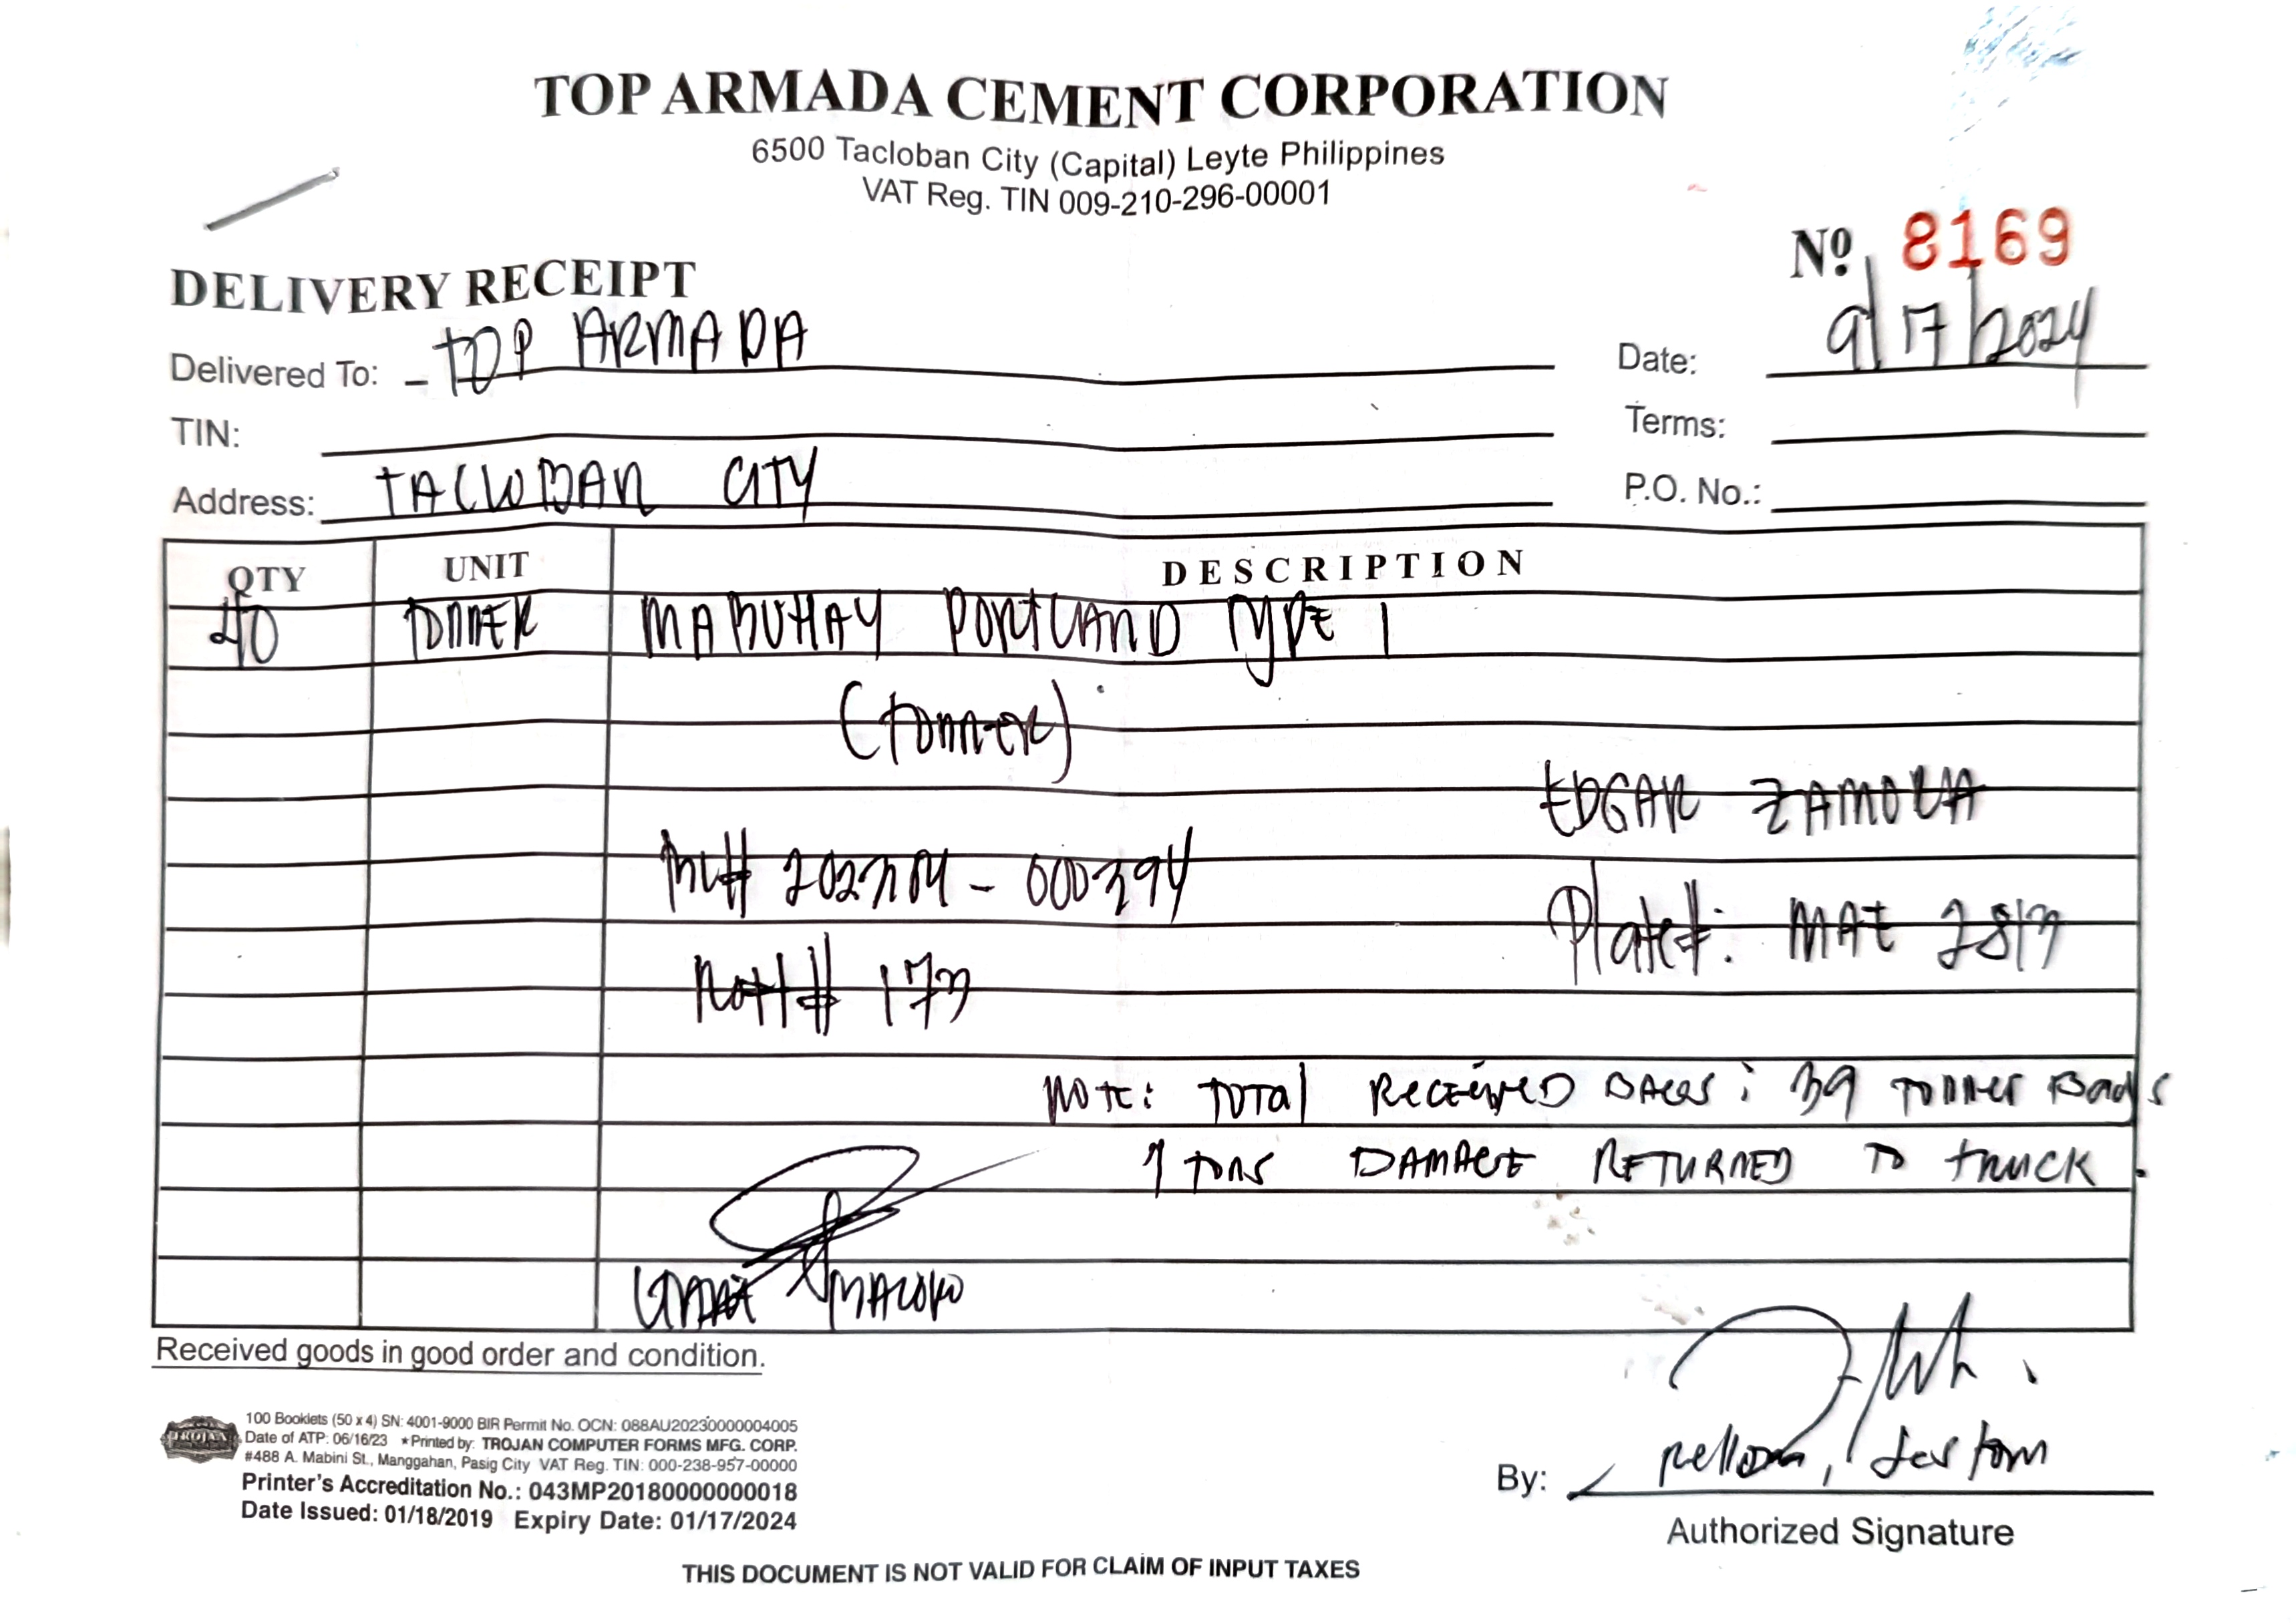 TOP ARMADA CEMENT CORPORATION
6500 Tacloban City (Capital) Leyte Philippines
VAT Reg. TIN 009-210-296-00001
Nº 8169
DELIVERY RECEIPT
Delivered To: - TOP ARMADA
Date: 9/17/2024
TIN:
Terms:
Address: TACLOBAN CITY
P.O. No.:
QTY UNIT DESCRIPTION
40 TONNER MABUHAY PORTLAND TYPE 1
(TONNER)
EDGAR ZAMORA
000394
Plate#: MAE
# 173
NOTE: TOTAL RECEIVED BAGS: 39 TONNER Bags
1 TONS DAMAGE RETURNED TO TRUCK.
Received goods in good order and condition.
100 Booklets (50 x 4) SN: 4001-9000 BIR Permit No. OCN: 088AU20230000004005
TROJAN
Date of ATP: 06/16/23 ★Printed by: TROJAN COMPUTER FORMS MFG. CORP.
#488 A. Mabini St., Manggahan, Pasig City VAT Reg. TIN: 000-238-957-00000
Printer's Accreditation No.: 043MP20180000000018
Date Issued: 01/18/2019 Expiry Date: 01/17/2024
By:
Authorized Signature
THIS DOCUMENT IS NOT VALID FOR CLAIM OF INPUT TAXES